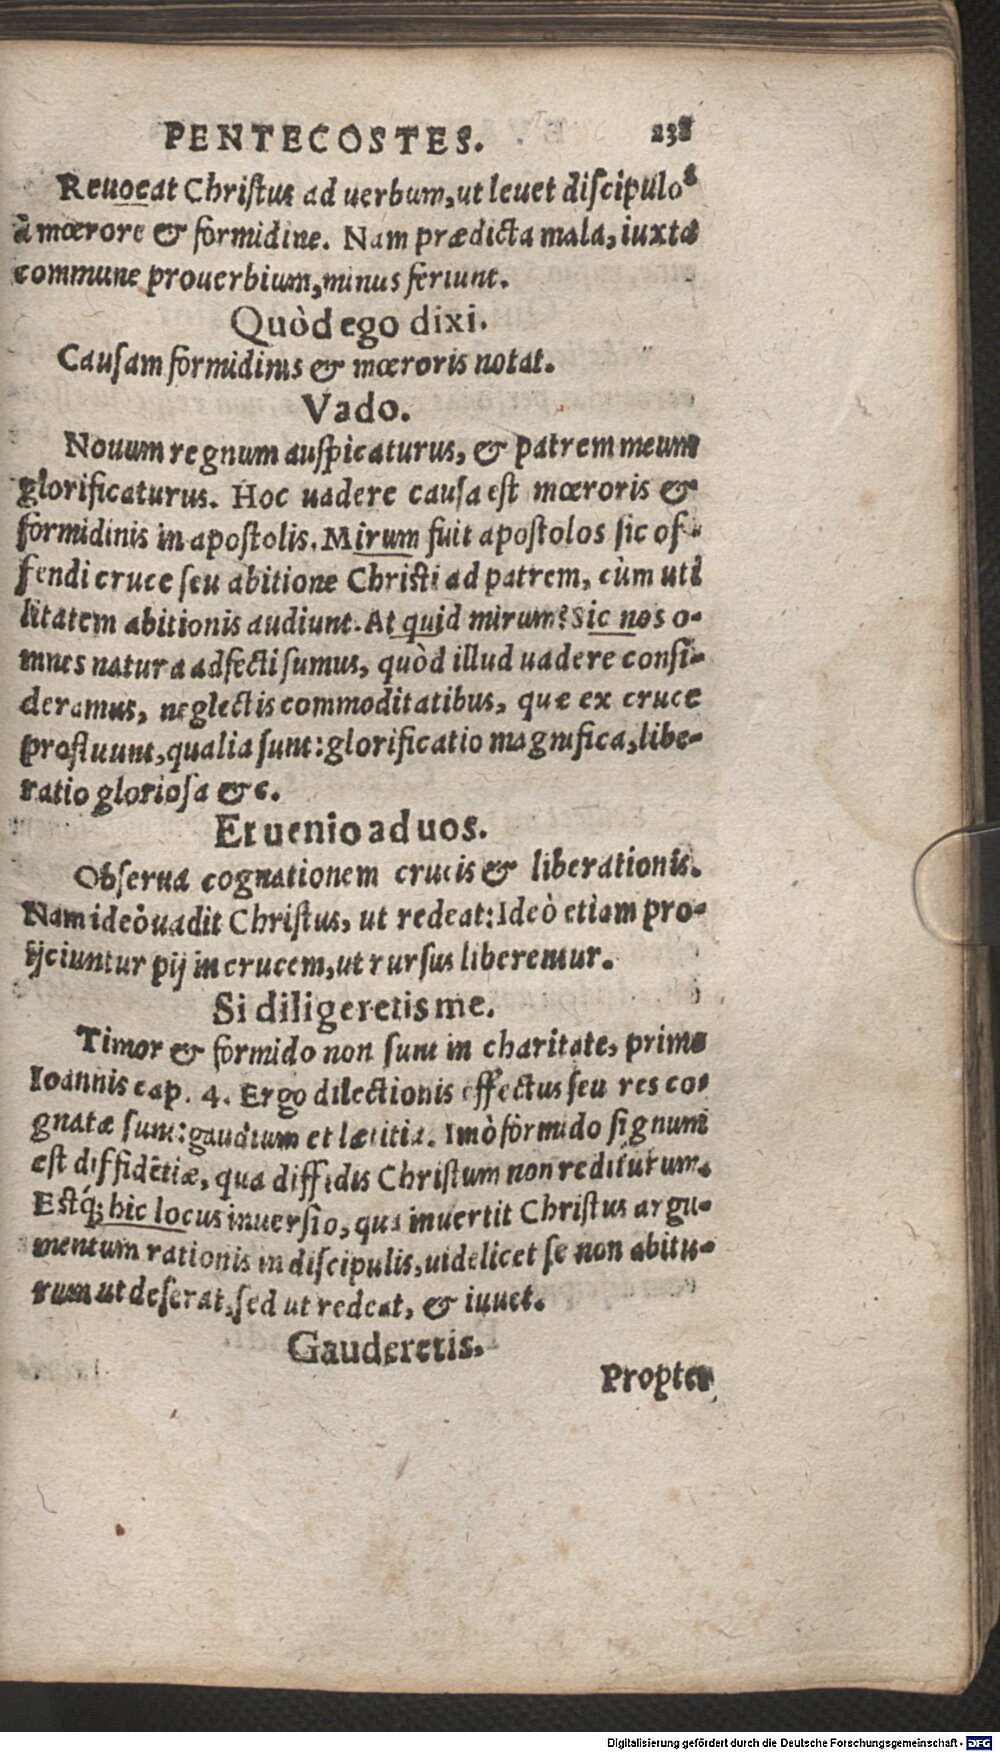 PENTECOSTES. 238
Reuocat Christus ad uerbum, ut leuet discipulos
à mœrore & formidine. Nam prædicta mala, iuxta
commune prouerbium, minus feriunt.
Quòd ego dixi.
Causam formidinis & mœroris notat.
Vado.
Nouum regnum auspicaturus, & patrem meum
glorificaturus. Hoc uadere causa est mœroris &
formidinis in apostolis. Mirum fuit apostolos sic of-
fendi cruce seu abitione Christi ad patrem, cùm uti
litatem abitionis audiunt. At quid mirum? Sic nos o-
mnes natura adfecti sumus, quòd illud uadere consi-
deramus, neglectis commoditatibus, quæ ex cruce
profluunt, qualia sunt: glorificatio magnifica, libe-
ratio gloriosa &c.
Et uenio ad uos.
Obserua cognationem crucis & liberationis.
Nam ideò uadit Christus, ut redeat: Ideò etiam pro-
ijciuntur pij in crucem, ut rursus liberentur.
Si diligeretis me.
Timor & formido non sunt in charitate, primæ
Ioannis cap. 4. Ergo dilectionis effectus seu res co-
gnatæ sunt: gaudium et lætitia. Imò formido signum
est diffidētiæ, qua diffidis Christum non rediturum.
Estq́; hic locus inuersio, qua inuertit Christus argu-
mentum rationis in discipulis, uidelicet se non abitu-
rum ut deserat, sed ut redeat, & iuuet.
Gauderetis.
Propter
Digitalisierung gefördert durch die Deutsche Forschungsgemeinschaft - DFG